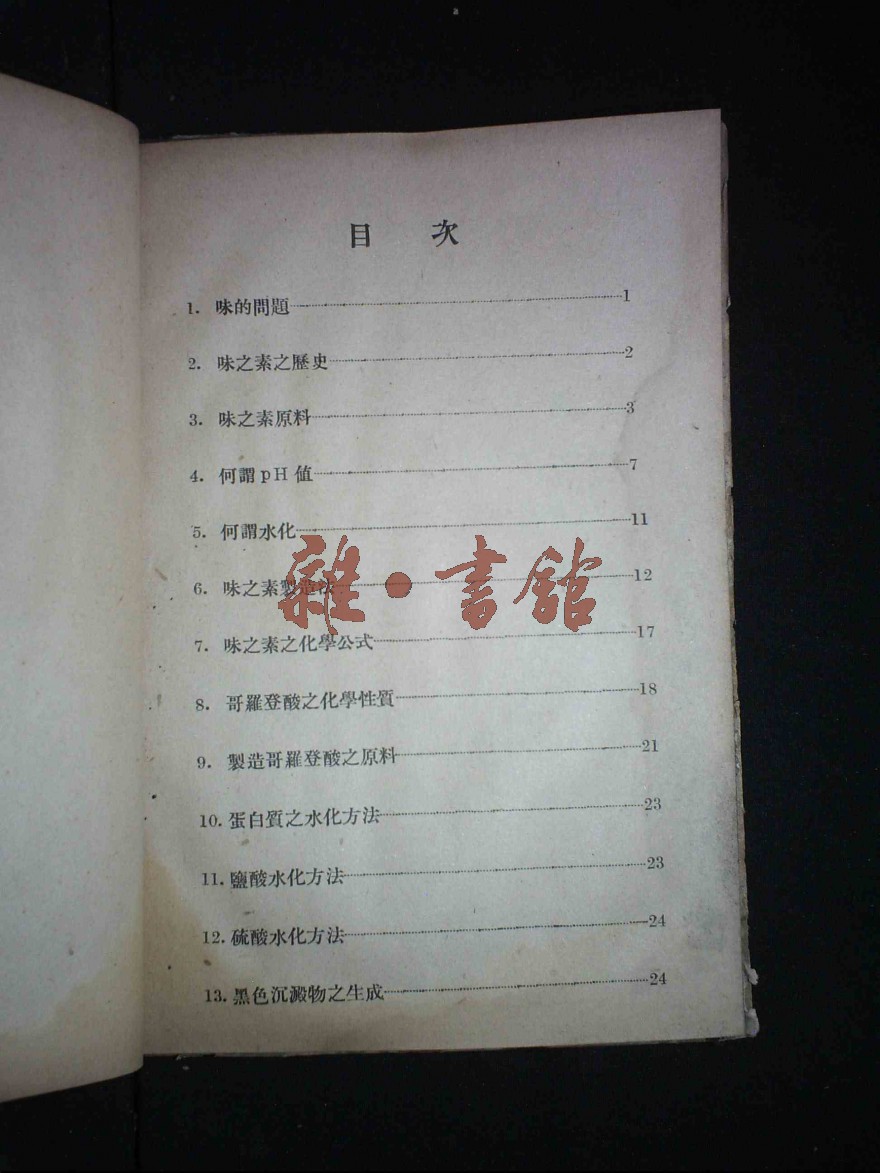 目 次
1. 味的問題 1
2. 味之素之歷史 2
3. 味之素原料 3
4. 何謂 pH 值 7
5. 何謂水化 11
6. 味之素製造法 12
雜·書館
7. 味之素之化學公式 17
8. 哥羅登酸之化學性質 18
9. 製造哥羅登酸之原料 21
10. 蛋白質之水化方法 23
11. 鹽酸水化方法 23
12. 硫酸水化方法 24
13. 黑色沉澱物之生成 24